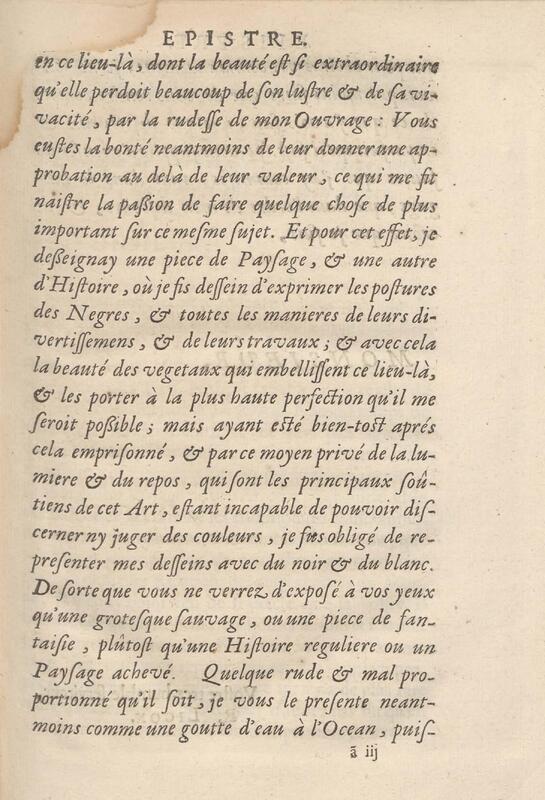 EPISTRE.
en ce lieu-là, dont la beauté est si extraordinaire
qu'elle perdoit beaucoup de son lustre & de sa vi-
vacité, par la rudesse de mon Ouvrage : Vous
eustes la bonté neantmoins de leur donner une ap-
probation au delà de leur valeur, ce qui me fit
naistre la passion de faire quelque chose de plus
important sur ce mesme sujet. Et pour cet effet, je
desseignay une piece de Paysage, & une autre
d'Histoire, où je fis dessein d'exprimer les postures
des Negres, & toutes les manieres de leurs di-
vertissemens, & de leurs travaux ; & avec cela
la beauté des vegetaux qui embellissent ce lieu-là,
& les porter à la plus haute perfection qu'il me
seroit possible ; mais ayant esté bien-tost aprés
cela emprisonné, & par ce moyen privé de la lu-
miere & du repos, qui sont les principaux soû-
tiens de cet Art, estant incapable de pouvoir dis-
cerner ny juger des couleurs, je fus obligé de re-
presenter mes desseins avec du noir & du blanc.
De sorte que vous ne verrez d'exposé à vos yeux
qu'une grotesque sauvage, ou une piece de fan-
taisie, plûtost qu'une Histoire reguliere ou un
Paysage achevé. Quelque rude & mal pro-
portionné qu'il soit, je vous le presente neant-
moins comme une goutte d'eau à l'Ocean, puis-
ã iij